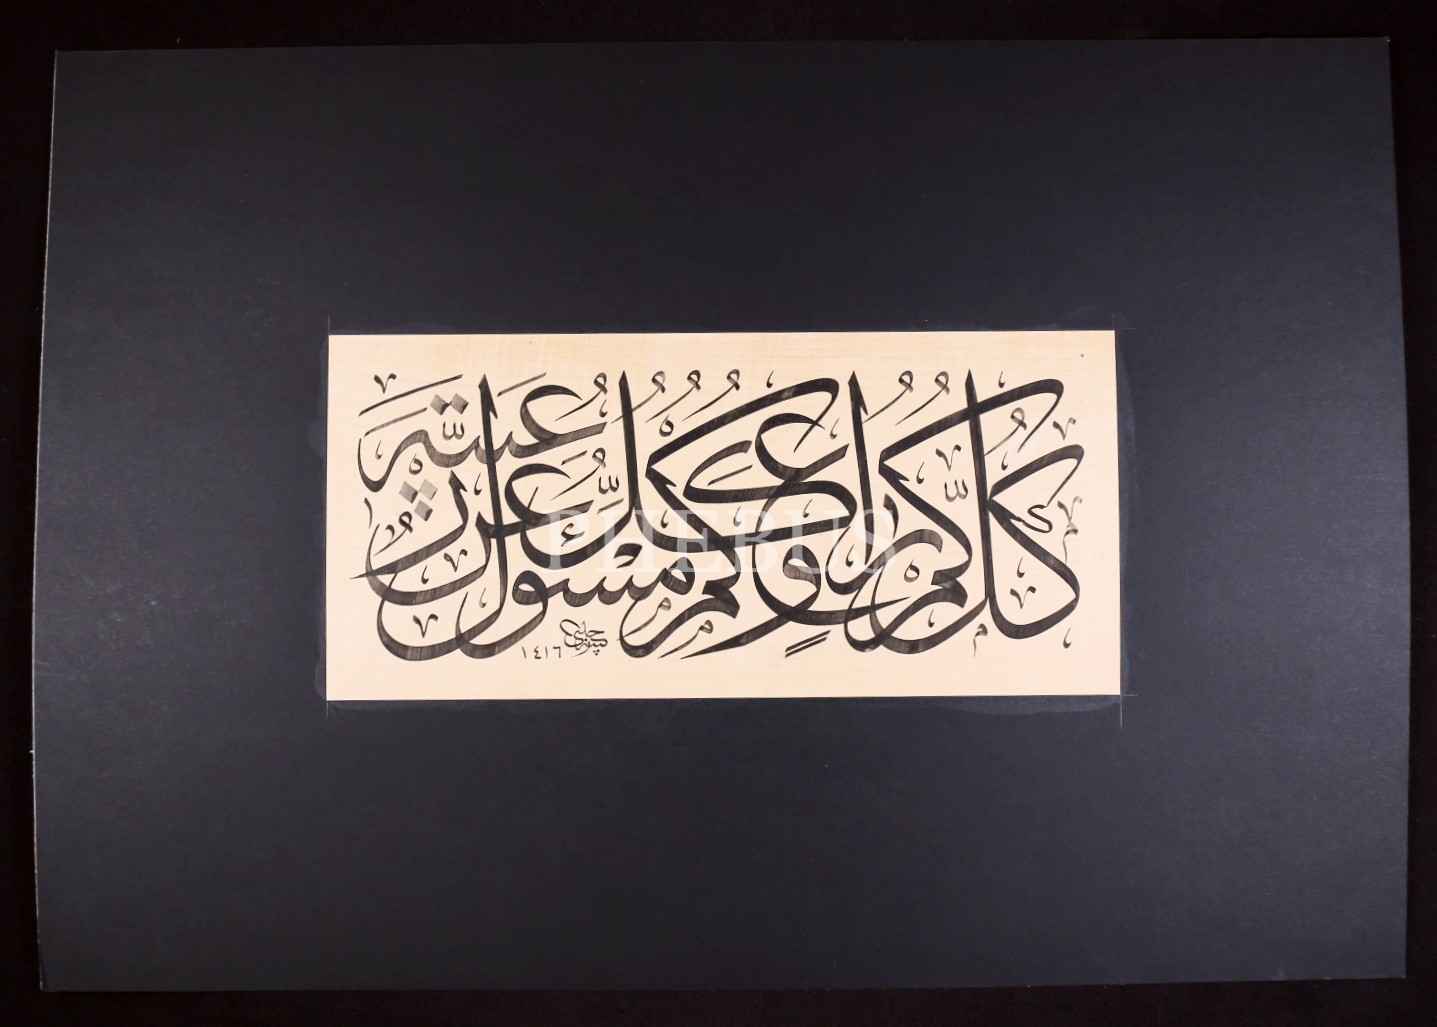 كُلُّكُمْ رَاعٍ وَكُلُّكُمْ مَسْئُولٌ عَنْ رَعِيَّتِهِ
١٤١٦
PHEBUS